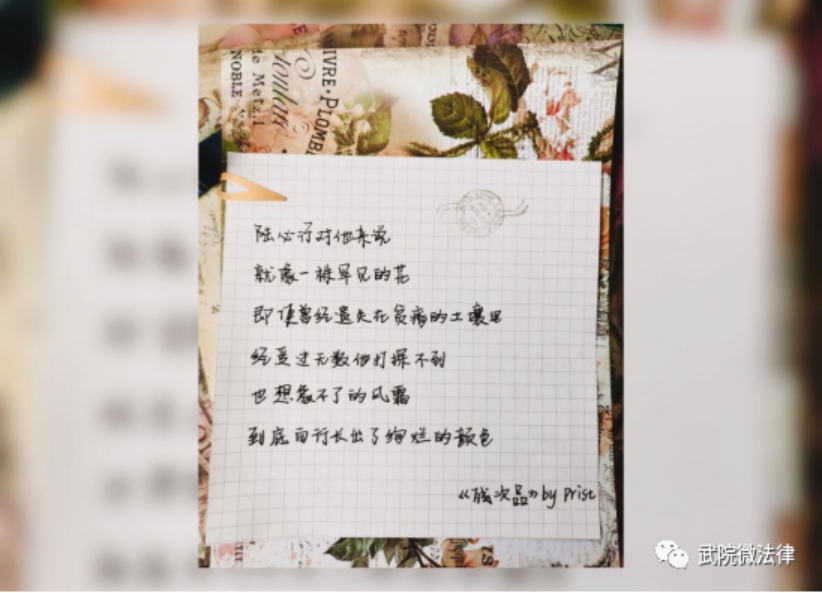 IVRE·PLOMB
de Metz.1
NOBLE
陆必行对他来说
就像一株罕见的花
即使曾经遗失在贫瘠的土壤里
经受过无数他打探不到
也想象不了的风霜
到底自行长出了绚烂的颜色
《残次品》by Prist
武院微法律